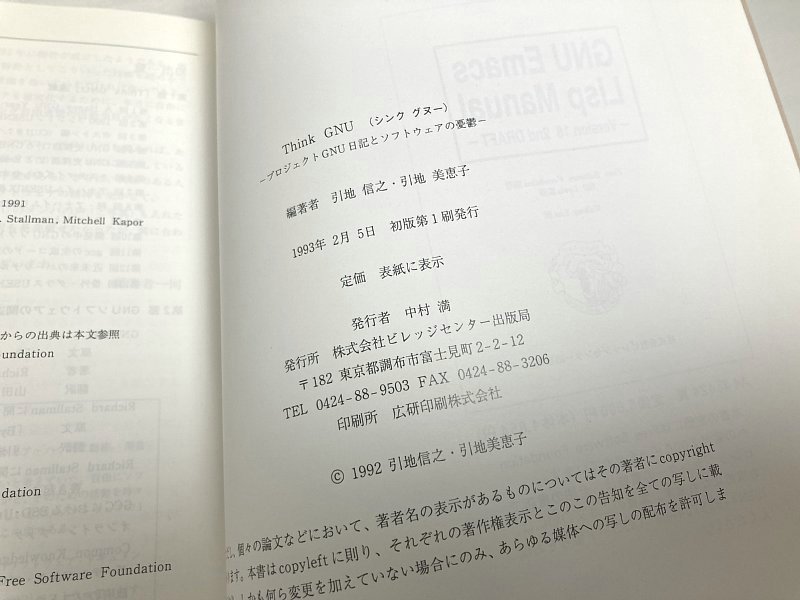 1991
. Stallman, Mitchell Kapor
からの出典は本文参照
oundation
ndation
Free Software Foundation
Think GNU (シンク グヌー)
−プロジェクトGNU日記とソフトウェアの憂鬱−
編著者 引地 信之・引地 美恵子
1993年 2月 5日 初版第1刷発行
定価 表紙に表示
発行者 中村 満
発行所 株式会社ビレッジセンター出版局
〒182 東京都調布市富士見町2-2-12
TEL 0424-88-9503 FAX 0424-88-3206
印刷所 広研印刷株式会社
© 1992 引地信之・引地美恵子
個々の論文などにおいて、著者名の表示があるものについてはその著者にcopyright
ます。本書はcopyleftに則り、それぞれの著作権表示とこのこの告知を全ての写しに載
しかも何ら変更を加えていない場合にのみ、あらゆる媒体への写しの配布を許可しま